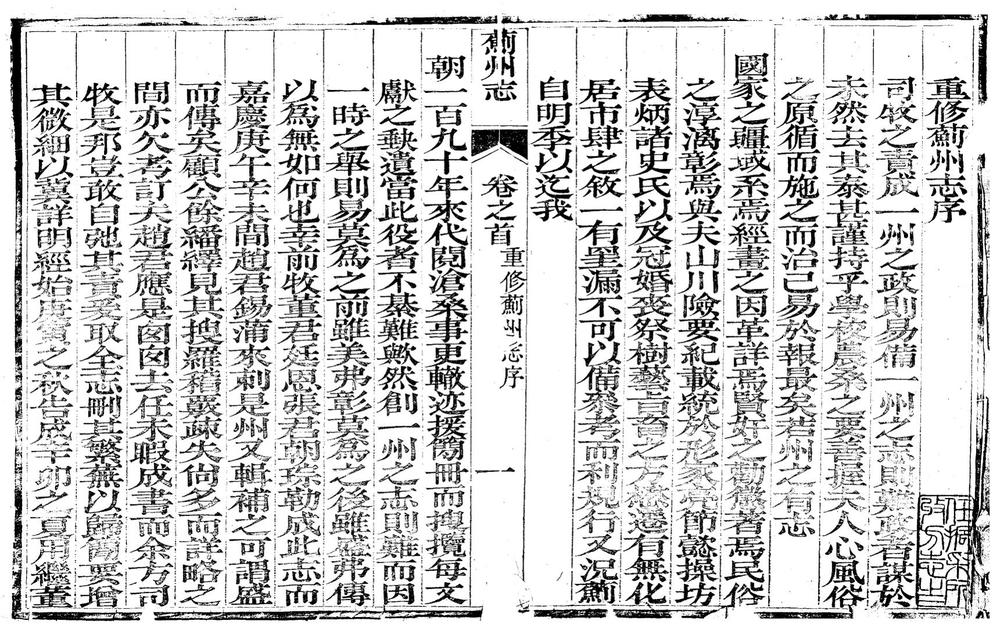 重修薊州志序
司牧之責成一州之政則易備一州之志則難政者謀於
未然去其泰甚謹持乎學校農桑之要善握夫人心風俗
之原循而施之而治已易於報最矣若州之有志
國家之疆域系焉經畫之因革詳焉賢奸之勸懲者焉民俗
之淳漓彰焉與夫山川險要紀載統於形家亮節懿操坊
表炳諸史氏以及冠婚喪祭樹藝畜之方懋遷有無化
居市肆之敘一有罣漏不可以備參考而利規行又況薊
自明季以迄我
薊州志
卷之首
重修薊州志序
一
朝一百九十年來代閱滄桑事更轍迹援簡冊而搜攬每文
獻之軼遺當此役者不綦難歟然創一州之志則難而因
一時之舉則易莫為之前雖美弗彰莫為之後雖盛弗傳
以為無如何也幸前牧董君廷恩張君朝琮勒成此志而
嘉慶庚午辛未間趙君錫蒲來刺是州又輯補之可謂盛
而傳矣顧公餘繙繹見其搜羅稽覈疎失尚多而詳略之
間亦欠考訂夫趙君應是囪囪去任未暇成書而余方司
牧是邦豈敢自弛其責爰取全志刪其繁蕪以歸簡要增
其微細以冀詳明經始庚寅之秋告成辛卯之夏用繼董